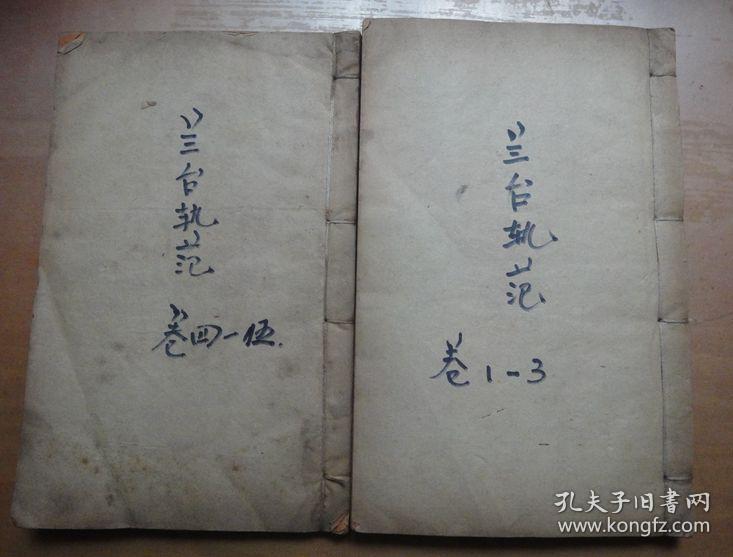 兰台轨范
卷1-3
兰台轨范
卷四-伍.
孔夫子旧书网
www.kongfz.com